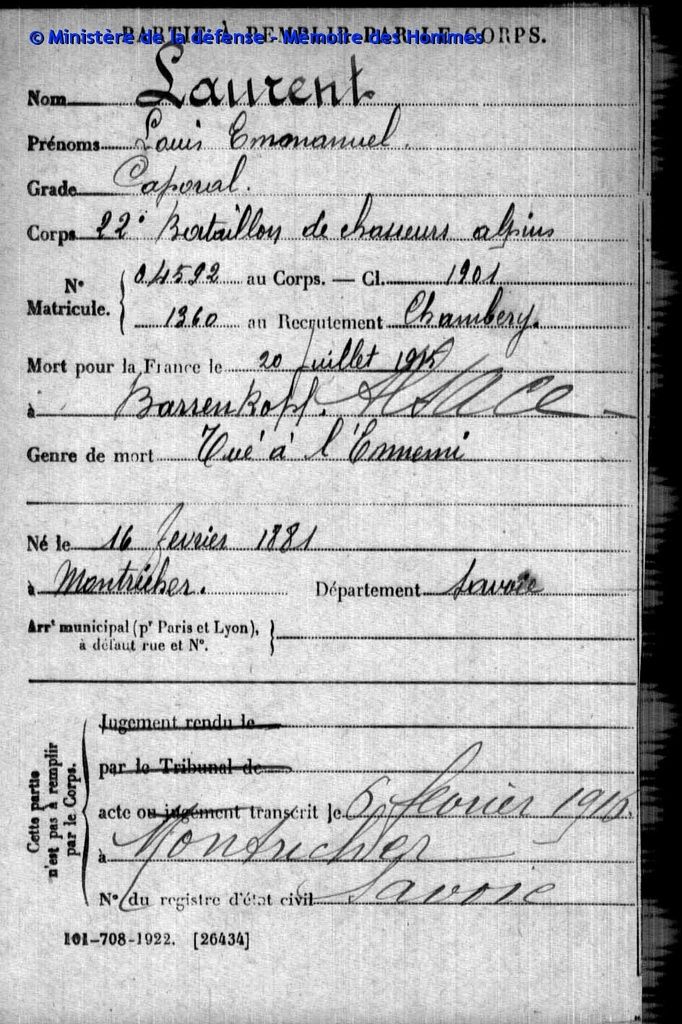 PARTIE À REMPLIR PAR LE CORPS.
© Ministère de la défense - Mémoire des Hommes
Nom Laurent
Prénoms Louis Emmanuel.
Grade Caporal.
Corps 22e Bataillon de chasseurs alpins
N° Matricule. { 04592 au Corps. — Cl. 1901
1360 au Recrutement Chambéry.
Mort pour la France le 20 Juillet 1915
à Barrenkopf. ALSACE
Genre de mort Tué à l'Ennemi
Né le 16 février 1881
à Montricher. Département Savoie
Arrt municipal (pr Paris et Lyon), à défaut rue et N°. }
Cette partie n'est pas à remplir par le Corps. {
Jugement rendu le
par le Tribunal de
acte ou jugement transcrit le 6 février 1916
à Montricher
N° du registre d'état civil Savoie
101-708-1922. [26434]